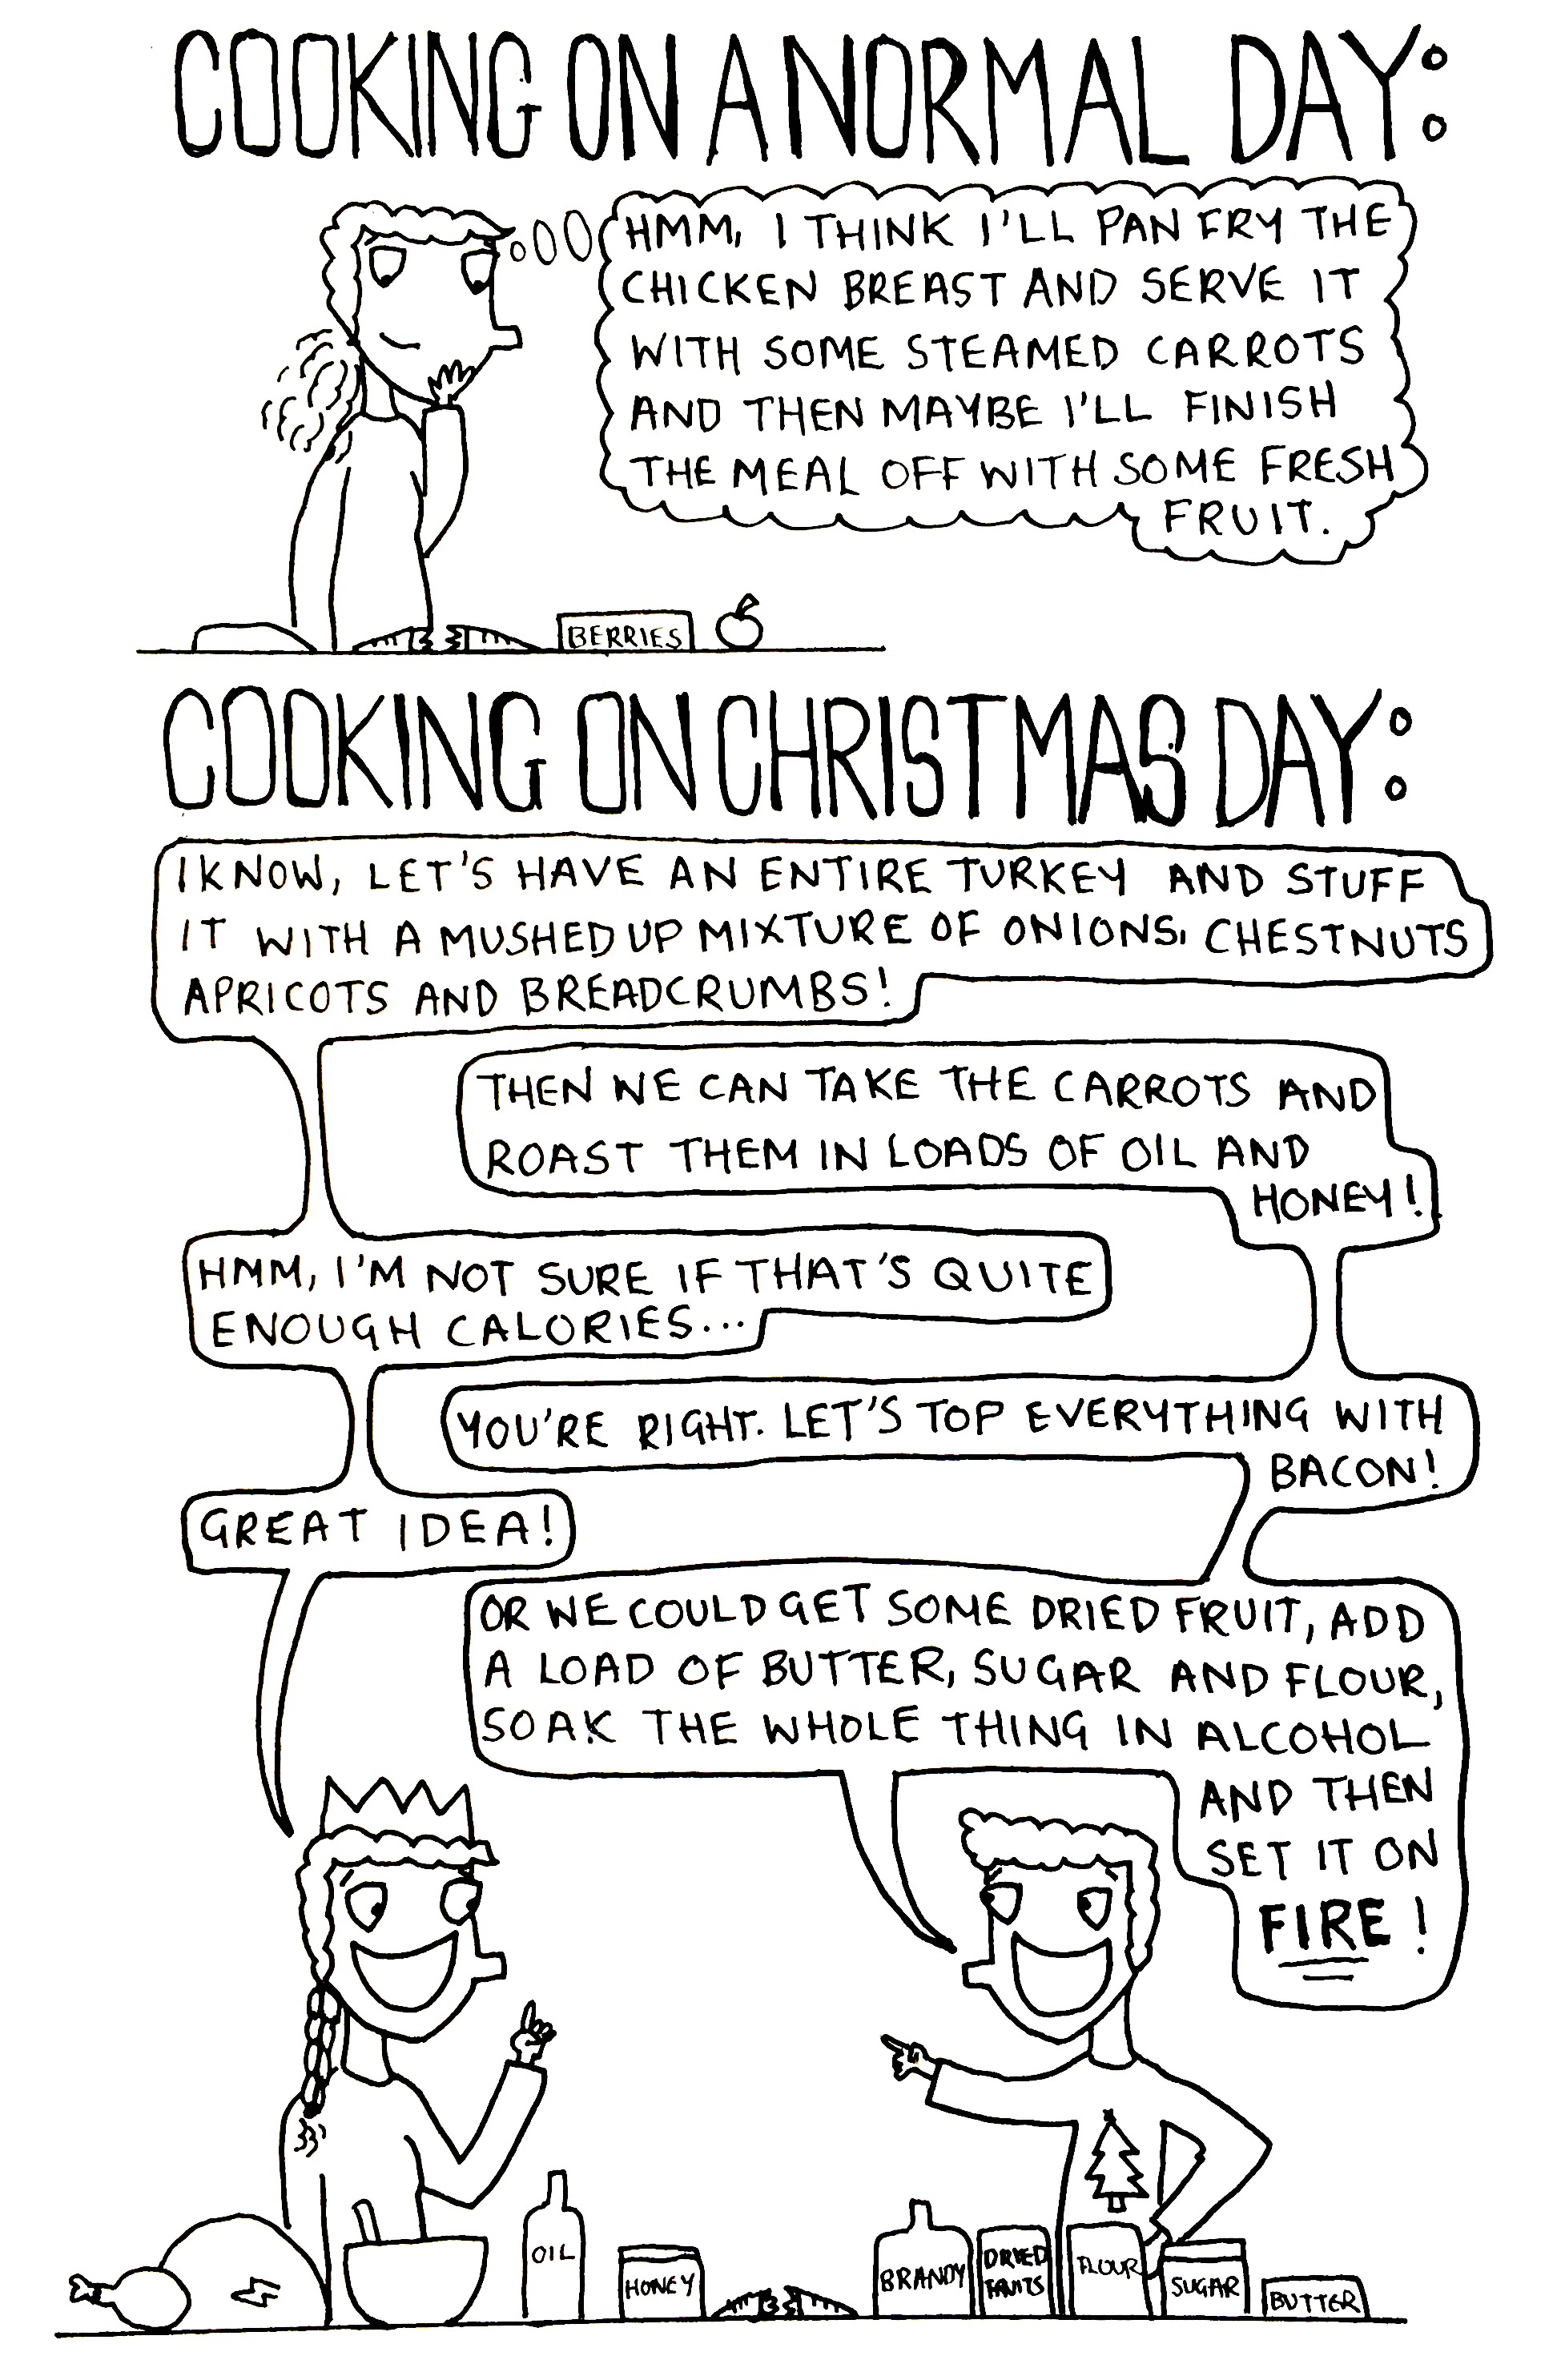 COOKING ON A NORMAL DAY:
HMM, I THINK I'LL PAN FRY THE
CHICKEN BREAST AND SERVE IT
WITH SOME STEAMED CARROTS
AND THEN MAYBE I'LL FINISH
THE MEAL OFF WITH SOME FRESH
FRUIT.
BERRIES
COOKING ON CHRISTMAS DAY:
I KNOW, LET'S HAVE AN ENTIRE TURKEY AND STUFF
IT WITH A MUSHED UP MIXTURE OF ONIONS, CHESTNUTS
APRICOTS AND BREADCRUMBS!
THEN WE CAN TAKE THE CARROTS AND
ROAST THEM IN LOADS OF OIL AND
HONEY!
HMM, I'M NOT SURE IF THAT'S QUITE
ENOUGH CALORIES...
YOU'RE RIGHT. LET'S TOP EVERYTHING WITH
BACON!
GREAT IDEA!
OR WE COULD GET SOME DRIED FRUIT, ADD
A LOAD OF BUTTER, SUGAR AND FLOUR,
SOAK THE WHOLE THING IN ALCOHOL
AND THEN
SET IT ON
FIRE!
OIL
HONEY
BRANDY
DRIED
FRUITS
FLOUR
SUGAR
BUTTER